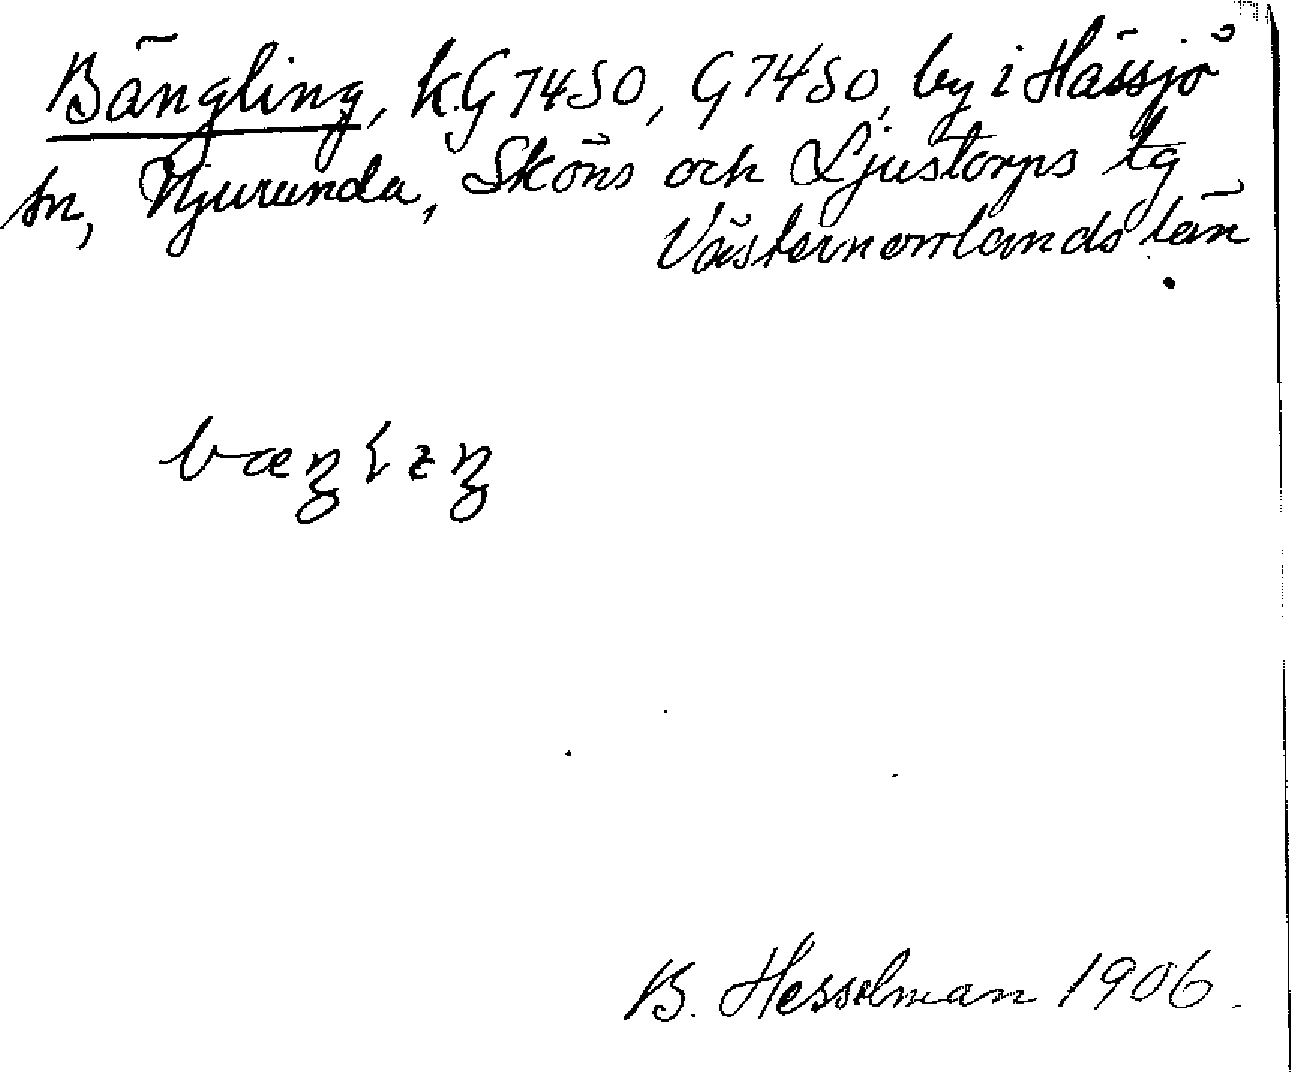 Bängling, k.G 7450, G 7450, by i Hässjö
sn, Njurunda, Sköns och Ljustorps tg
Västernorrlands län
B. Hesselman 1906.